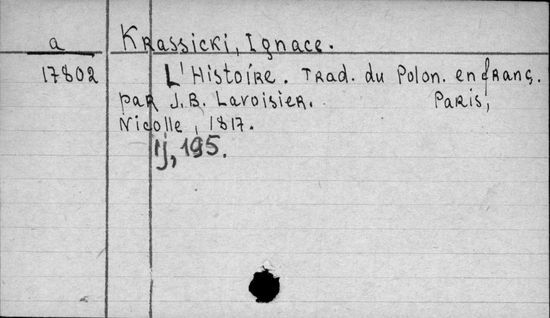 a Krassicki, Ignace.
17802 L'Histoire. Trad. du Polon. en franç.
par J.B. Lavoisier. Paris,
Nicolle, 1817.
ij, 195.